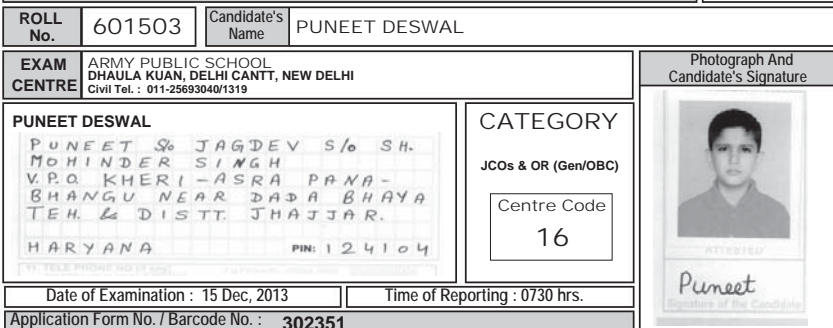 ROLL No. 601503 Candidate's Name PUNEET DESWAL
EXAM CENTRE
ARMY PUBLIC SCHOOL
DHAULA KUAN, DELHI CANTT, NEW DELHI
Civil Tel. : 011-25693040/1319
Photograph And
Candidate's Signature
PUNEET DESWAL
PUNEET S/o JAGDEV S/o SH.
MOHINDER SINGH
V.P.O. KHERI-ASRA PANA-
BHANGU NEAR DADA BHAYA
TEH. & DISTT. JHAJJAR.
HARYANA PIN: 124104
11. TELE PHONE NO (if any)
CATEGORY
JCOs & OR (Gen/OBC)
Centre Code
16
ATTESTED
Puneet
Signature of the Candidate
Date of Examination : 15 Dec, 2013 Time of Reporting : 0730 hrs.
Application Form No. / Barcode No. : 302351